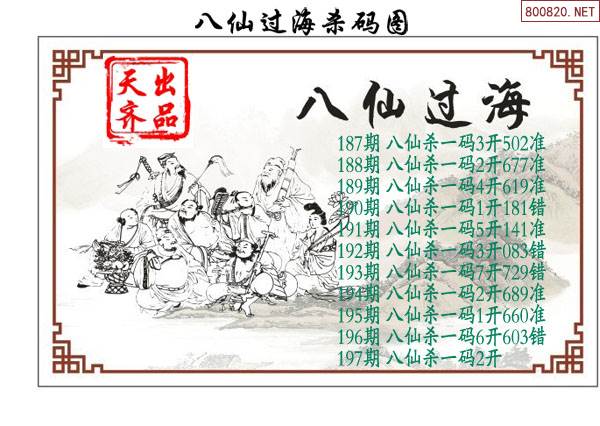 八仙过海杀码图
800820.NET
天齐出品
八仙过海
187期 八仙杀一码3开502准
188期 八仙杀一码2开677准
189期 八仙杀一码4开619准
190期 八仙杀一码1开181错
191期 八仙杀一码5开141准
192期 八仙杀一码3开083错
193期 八仙杀一码7开729错
194期 八仙杀一码2开689准
195期 八仙杀一码1开660准
196期 八仙杀一码6开603错
197期 八仙杀一码2开